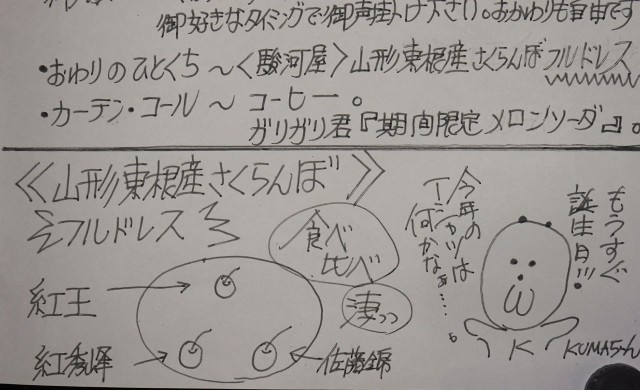 御好きなタイミングで御声掛け下さい。おかわりも自由です
・おわりのひとくち〜〈駿河屋〉山形東根産さくらんぼフルドレス
・カーテン・コール 〜 コーヒー。
ガリガリ君『期間限定メロンソーダ』。
《山形東根産さくらんぼ》
フルドレス
食べ
比べ
凄っっ
紅王
紅秀峰
佐藤錦
今年の
Tシャツは
何かなぁ…。
もうすぐ
誕生日!!
K
KUMAちゃん